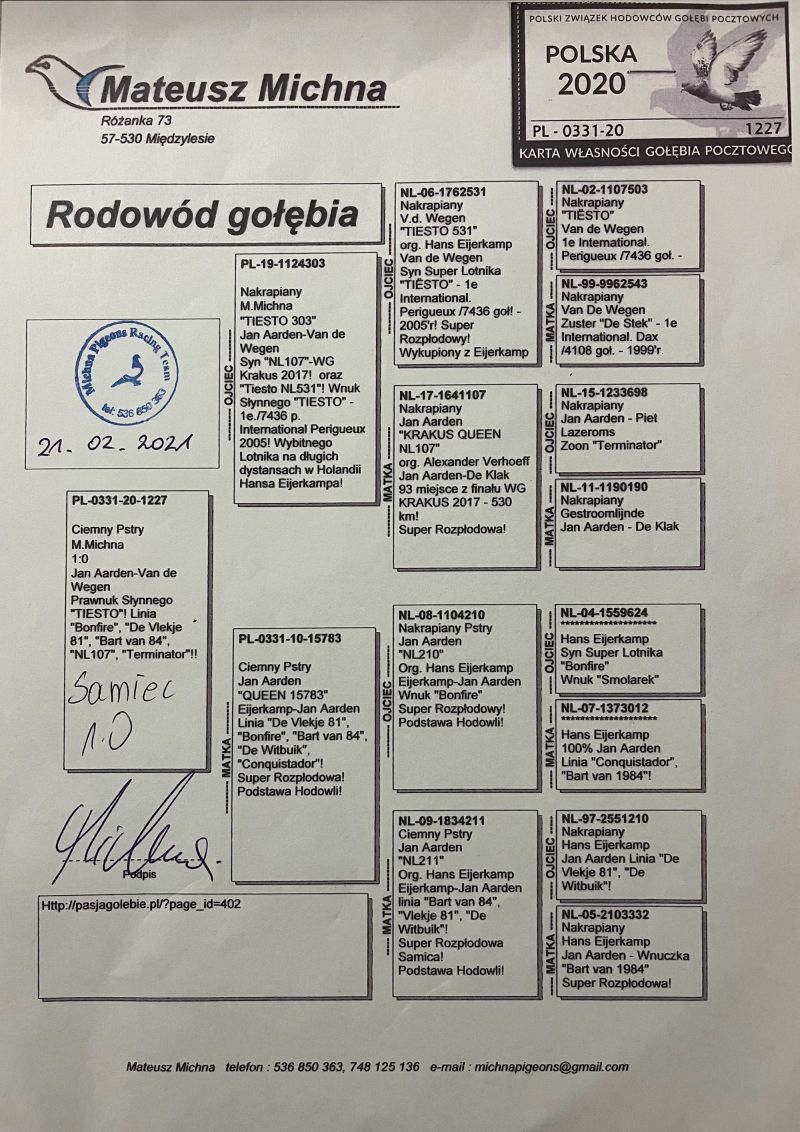 Mateusz Michna
Różanka 73
57-530 Międzylesie
POLSKI ZWIĄZEK HODOWCÓW GOŁĘBI POCZTOWYCH
POLSKA
2020
PL - 0331-20
1227
KARTA WŁASNOŚCI GOŁĘBIA POCZTOWEGO
Rodowód gołębia
Michna Pigeons Racing Team
tel: 536 850 363
21. 02. 2021
PL-0331-20-1227
Ciemny Pstry
M.Michna
1:0
Jan Aarden-Van de
Wegen
Prawnuk Słynnego
"TIESTO"! Linia
"Bonfire", "De Vlekje
81", "Bart van 84",
"NL107", "Terminator"!!
Samiec
1.0
Podpis
Http://pasjagolebie.pl/?page_id=402
OJCIEC
PL-19-1124303
Nakrapiany
M.Michna
"TIESTO 303"
Jan Aarden-Van de
Wegen
Syn "NL107"-WG
Krakus 2017! oraz
"Tiesto NL531"! Wnuk
Słynnego "TIESTO" -
1e./7436 p.
International Perigueux
2005! Wybitnego
Lotnika na długich
dystansach w Holandii
Hansa Eijerkampa!
MATKA
PL-0331-10-15783
Ciemny Pstry
Jan Aarden
"QUEEN 15783"
Eijerkamp-Jan Aarden
Linia "De Vlekje 81",
"Bonfire", "Bart van 84",
"De Witbuik",
"Conquistador"!
Super Rozpłodowa!
Podstawa Hodowli!
OJCIEC
NL-06-1762531
Nakrapiany
V.d. Wegen
"TIËSTO 531"
org. Hans Eijerkamp
Van de Wegen
Syn Super Lotnika
"TIËSTO" - 1e
International.
Perigueux /7436 goł! -
2005'r! Super
Rozpłodowy!
Wykupiony z Eijerkamp
MATKA
NL-17-1641107
Nakrapiany
Jan Aarden
"KRAKUS QUEEN
NL107"
org. Alexander Verhoeff
Jan Aarden-De Klak
93 miejsce z finału WG
KRAKUS 2017 - 530
km!
Super Rozpłodowa!
OJCIEC
NL-08-1104210
Nakrapiany Pstry
Jan Aarden
"NL210"
Org. Hans Eijerkamp
Eijerkamp-Jan Aarden
Wnuk "Bonfire"
Super Rozpłodowy!
Podstawa Hodowli!
MATKA
NL-09-1834211
Ciemny Pstry
Jan Aarden
"NL211"
Org. Hans Eijerkamp
Eijerkamp-Jan Aarden
linia "Bart van 84",
"Vlekje 81", "De
Witbuik"!
Super Rozpłodowa
Samica!
Podstawa Hodowli!
OJCIEC
NL-02-1107503
Nakrapiany
"TIËSTO"
Van de Wegen
1e International.
Perigueux /7436 goł. -
MATKA
NL-99-9962543
Nakrapiany
Van De Wegen
Zuster "De Stek" - 1e
International. Dax
/4108 goł. - 1999'r.
OJCIEC
NL-15-1233698
Nakrapiany
Jan Aarden - Piet
Lazeroms
Zoon "Terminator"
MATKA
NL-11-1190190
Nakrapiany
Gestroomlijnde
Jan Aarden - De Klak
OJCIEC
NL-04-1559624
********************
Hans Eijerkamp
Syn Super Lotnika
"Bonfire"
Wnuk "Smolarek"
MATKA
NL-07-1373012
********************
Hans Eijerkamp
100% Jan Aarden
Linia "Conquistador",
"Bart van 1984"!
OJCIEC
NL-97-2551210
Nakrapiany
Hans Eijerkamp
Jan Aarden Linia "De
Vlekje 81", "De
Witbuik"!
MATKA
NL-05-2103332
Nakrapiany
Hans Eijerkamp
Jan Aarden - Wnuczka
"Bart van 1984"
Super Rozpłodowa!
Mateusz Michna telefon : 536 850 363, 748 125 136 e-mail : michnapigeons@gmail.com